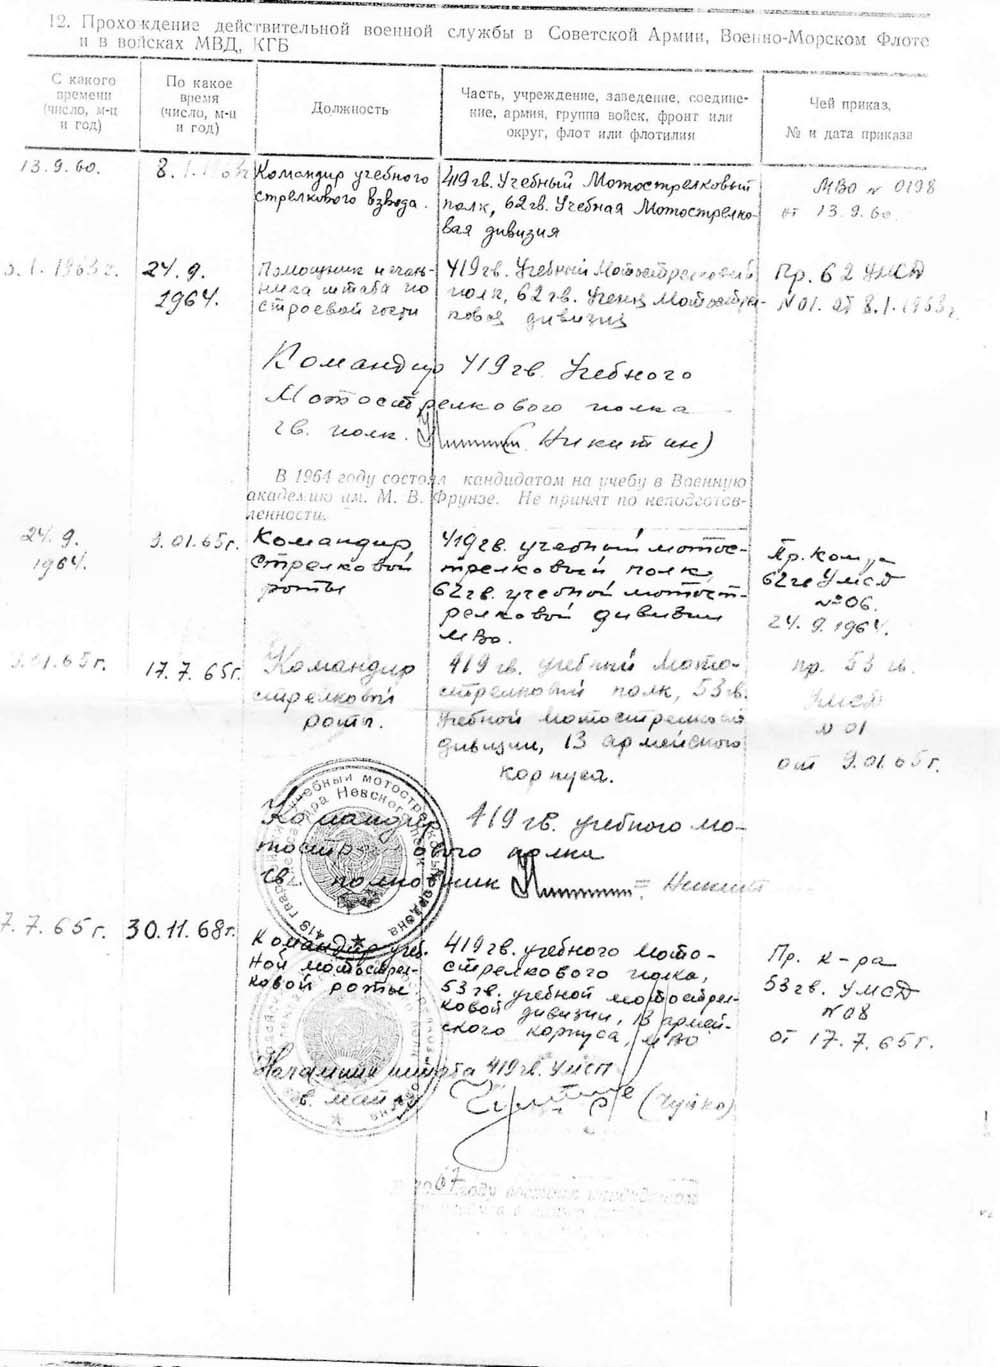 12. Прохождение действительной военной службы в Советской Армии, Военно-Морском Флоте
и в войсках МВД, КГБ
С какого
времени
(число, м-ц
и год)
По какое
время
(число, м-ц
и год)
Должность
Часть, учреждение, заведение, соедине-
ние, армия, группа войск, фронт или
округ, флот или флотилия
Чей приказ,
№ и дата приказа
13.9.60.
8.1.1963г
Командир учебного
стрелкового взвода.
419 гв. Учебный Мотострелковый
полк, 62 гв. Учебная Мотострелко-
вая дивизия
МВО № 0198
от 13.9.60.
8.1.1963г.
24.9.
1964.
Помощник началь-
ника штаба по
строевой части
419 гв. Учебный Мотострелковый
полк, 62 гв. Мотострел-
ковая дивизия
Пр. 62 УМСД
№ 01. от 8.1.1963г.
Командир 419 гв. Учебного
Мотострелкового полка
гв. полк. (Никитин)
В 1964 году состоял кандидатом на учебу в Военную
академию им. М. В. Фрунзе. Не принят по неподготов-
ленности.
24.9.
1964.
9.01.65г.
Командир
стрелковой
роты
419 гв. учебный мотос-
трелковый полк,
62 гв. учебной мотост-
релковой дивизии
МВО.
Пр. ком-ра
62 гв УМСД
№ 06.
24.9.1964.
9.01.65г.
17.7.65г.
Командир
стрелковой
роты.
419 гв. учебный мото-
стрелковый полк, 53 гв.
учебной мотострелковой
дивизии, 13 армейского
корпуса.
пр. 53 гв.
УМСД
№ 01
от 9.01.65г.
Командир 419 гв. учебного мо-
тострелкового полка
гв. полковник = Никит
7.7.65г.
30.11.68г.
Командир учеб-
ной мотострел-
ковой роты
419 гв. учебного мото-
стрелкового полка,
53 гв. учебной мотострел-
ковой дивизии, 13 армей-
ского корпуса, МВО
Пр. к-ра
53 гв. УМСД
№ 08
от 17.7.65г.
Начальник штаба 419 гв. УМСП
гв. майор (Чуйко)